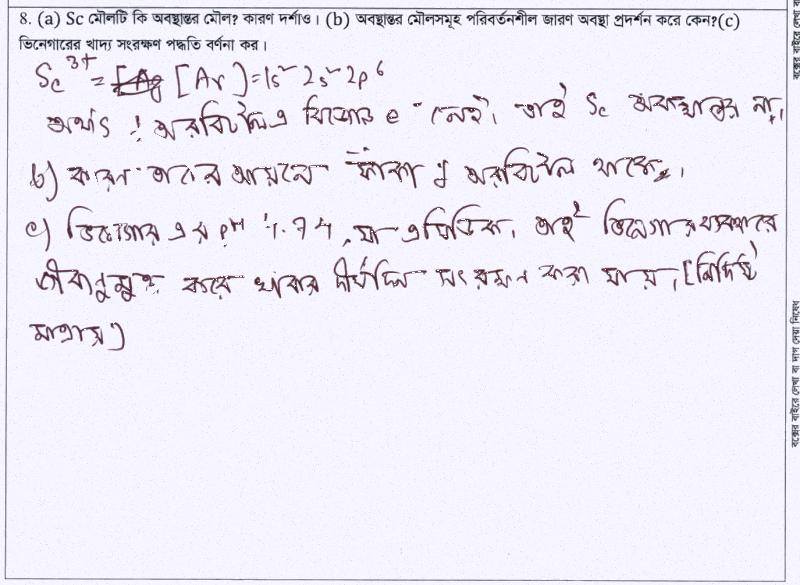 8. (a) Sc মৌলটি কি অবস্থান্তর মৌল? কারণ দর্শাও। (b) অবস্থান্তর মৌলসমূহ পরিবর্তনশীল জারণ অবস্থা প্রদর্শন করে কেন?(c)
ভিনেগারের খাদ্য সংরক্ষণ পদ্ধতি বর্ণনা কর।
Sc³⁺ = [Ar] = 1s² 2s² 2p⁶
অর্থাৎ d অরবিটালে বিজোড় e⁻ নেই, তাই Sc অবস্থান্তর না,
b) কারণ তাদের আয়নে ফাঁকা d অরবিটাল থাকে।
c) ভিনেগার এর pH 4.74, যা এসিডিক, তাই ভিনেগার ব্যবহারে
জীবাণুমুক্ত করে খাবার দীর্ঘদিন সংরক্ষণ করা যায়, [নির্দিষ্ট
মাত্রায়]
বক্সের বাইরে লেখা বা দাগ দেয়া নিষেধ